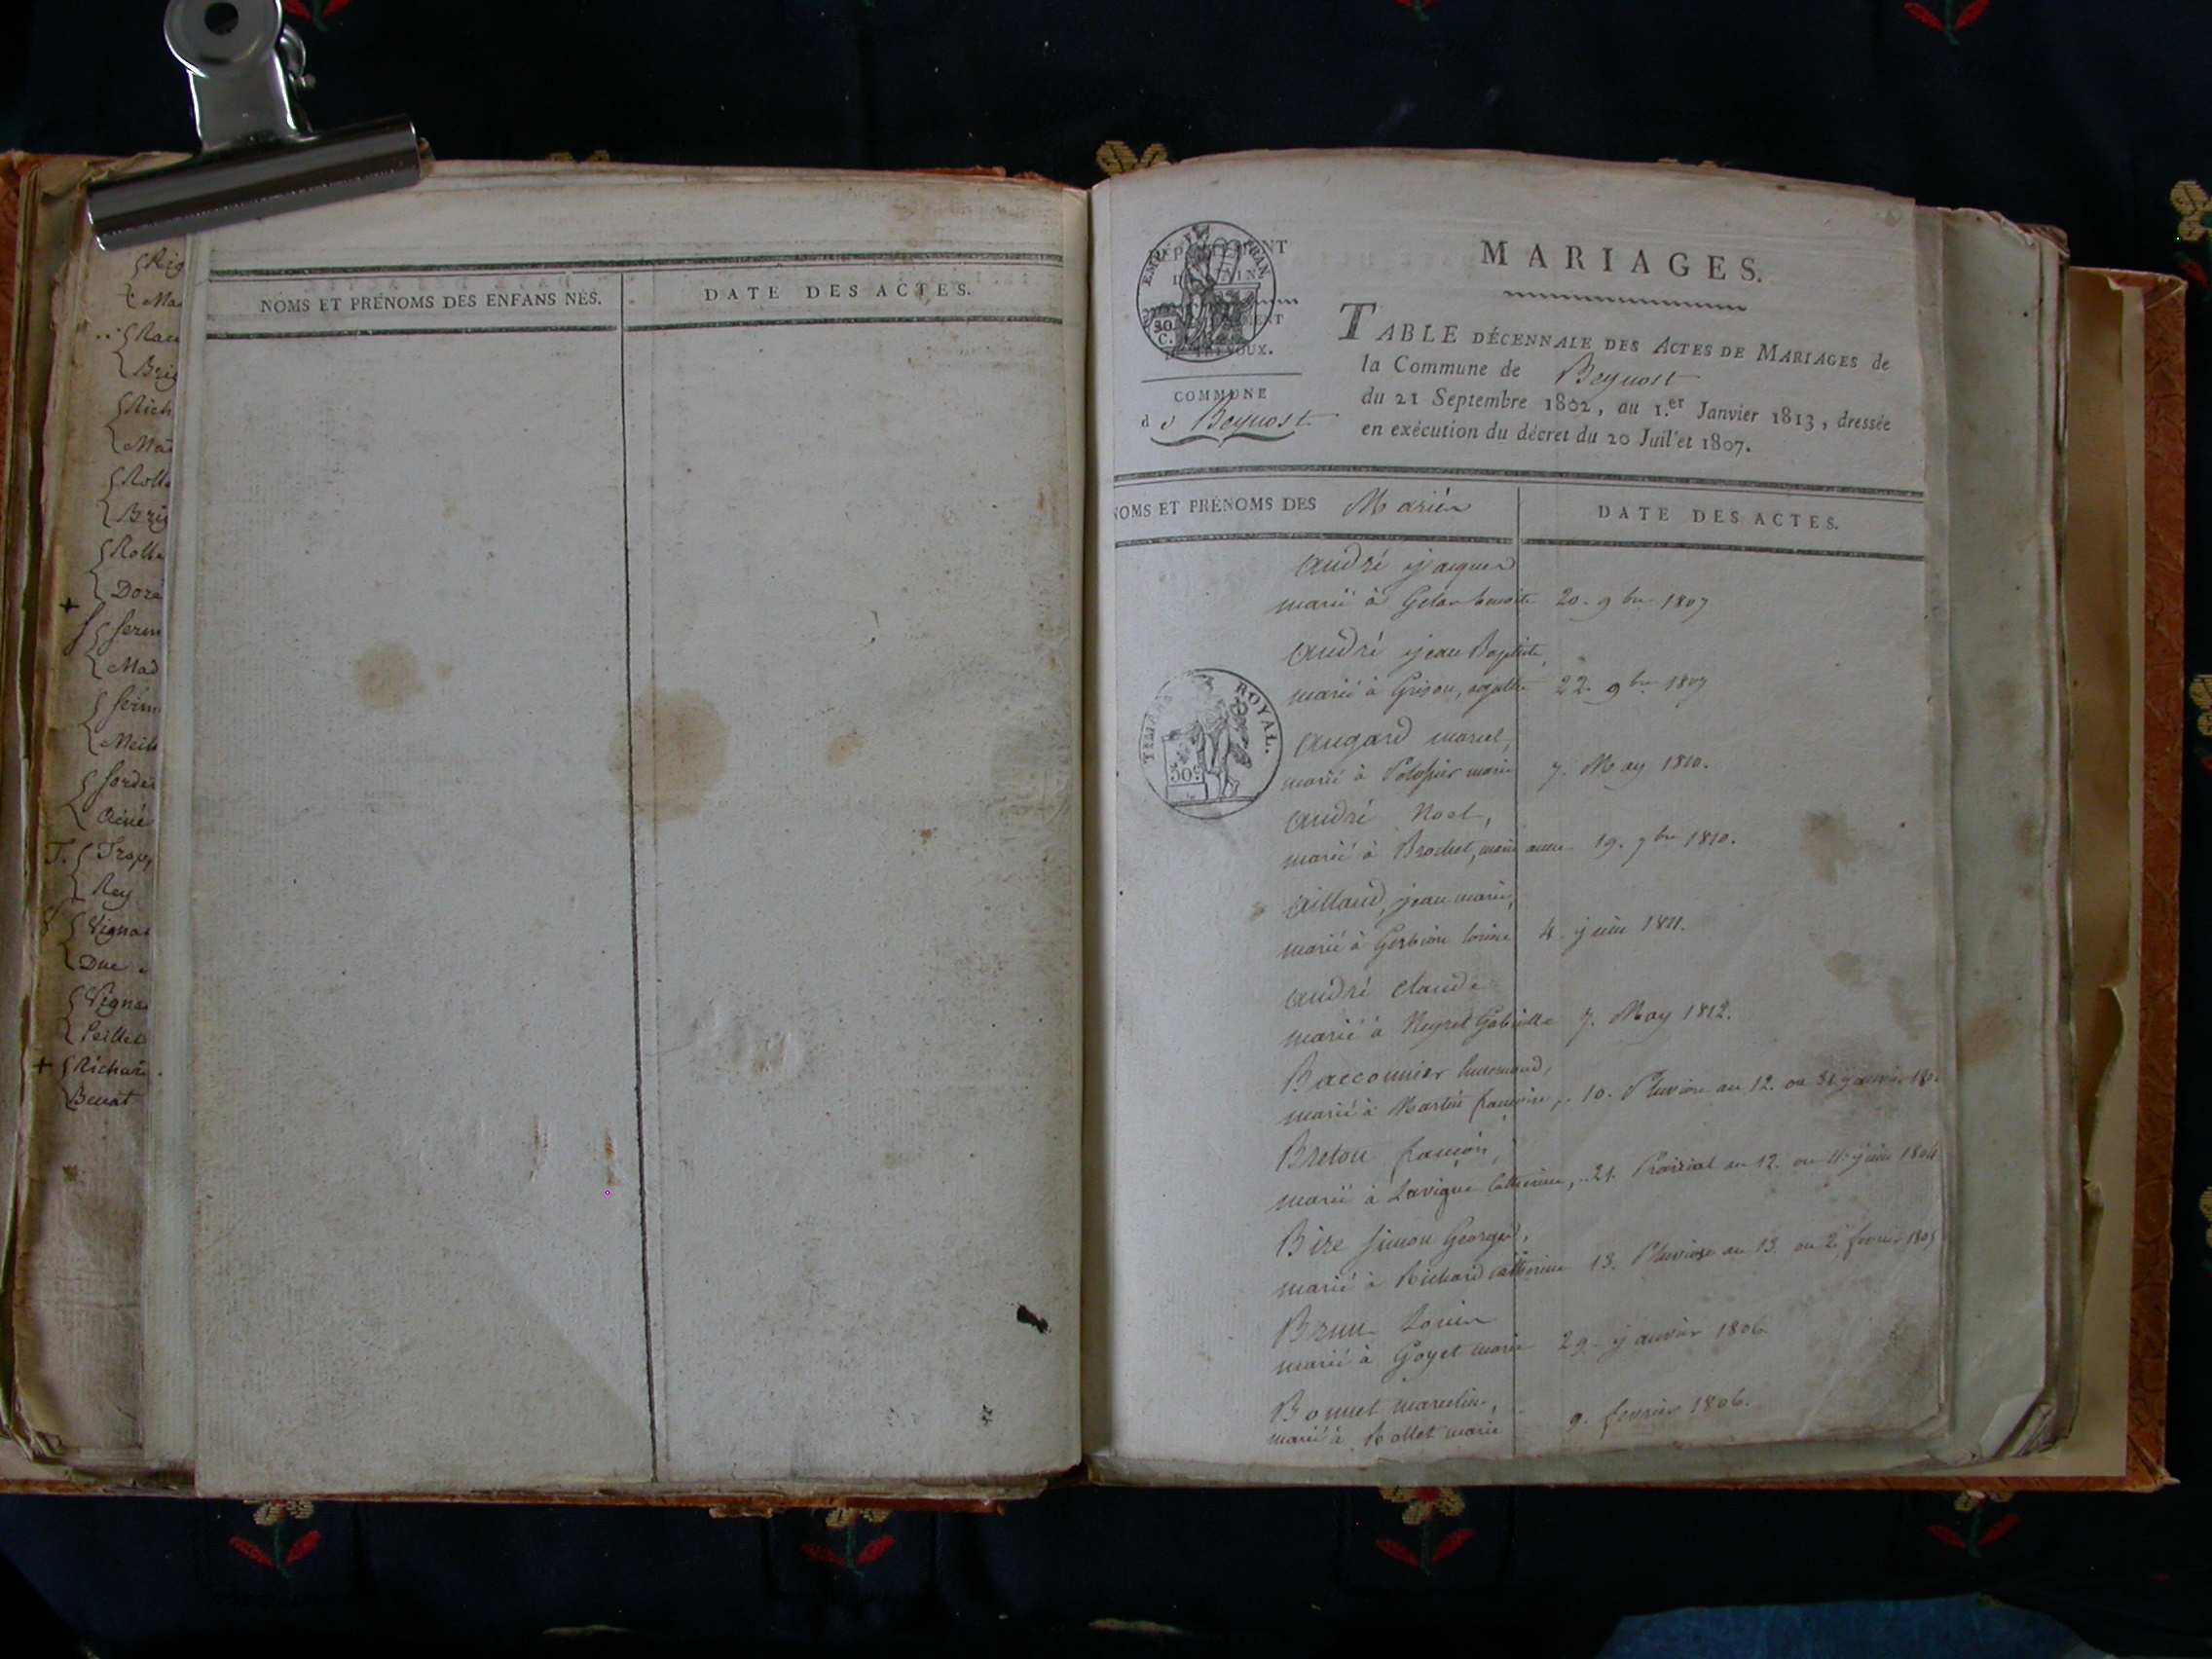 Rig
Ma
Rau
Brig
Rich
Ma
Rolle
Brig
Rolle
Doré
Serm
Mad
Serm
Meil
Sorde
Ainé
T. Trop
Rey
V Vigna
Duc
Vigna
Peillet
Richar
Benat
NOMS ET PRÉNOMS DES ENFANS NÉS.
DATE DES ACTES.
DÉPARTEMENT
EMPIRE FRAN.
30.
C.
TRÉVOUX.
COMMUNE
de Beynost
MARIAGES.
TABLE DÉCENNALE DES ACTES DE MARIAGES de
la Commune de Beynost
du 21 Septembre 1802, au 1.er Janvier 1813, dressée
en exécution du décret du 20 Juillet 1807.
NOMS ET PRÉNOMS DES Mariés
DATE DES ACTES.
TIMBRE ROYAL.
50c
André jacques
marié à benoite 20. 9bre 1807
André jean Baptiste,
marié à Grison, agathe 22. 9bre 1807
Augard marcel,
marié à marie 7. May 1810.
André Noel,
marié à Brochet, marie anne 19. 9bre 1810.
Aillaud, jean marie,
marié à 4. juin 1811.
André claude
marié à Neyret Gabrielle 7. May 1812.
Bacconnier
marié à Martin françoise, 10. Pluviose an 12. ou 31. janvier 180
Breton françois,
marié à Lavigne Catherine, 21. Prairial an 12. ou juin 1804
Bize Simon George,
marié à Richard catherine 13. Pluviose an 13. ou 2. fevrier 1805
Brun Louis
marié à Goyet marie 29. janvier 1806
Bonnet marcelin,
marié à Rollet marie 9. fevrier 1806.